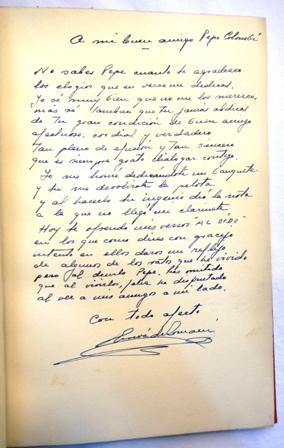 A mi buen amigo Pepe Colombí
No sabes Pepe cuanto te agradezco
los elogios que en verso me dedicas.
Yo sé muy bien que no me los merezco,
más sé tambien que tu jamás abdicas
de tu gran condición de buen amigo
afectuoso, cordial y verdadero
tan pleno de efusión y tan sincero
que es siempre grato dialogar contigo.
Yo me honré dedicandote un banquete
y tu me devolviste la pelota
y al hacerlo tu ingenio dió la nota
a la que no llegó mi clarinete
Hoy te ofrendo mis versos "AL OIDO"
en los que como dices con gracejo
intento en ellos daros un reflejo
de algunos de los ratos que he vivido
pero al decirlo Pepe, has omitido
que al vivirlos, feliz he disfrutado
al ver a mis amigos a mi lado.
Con todo afecto